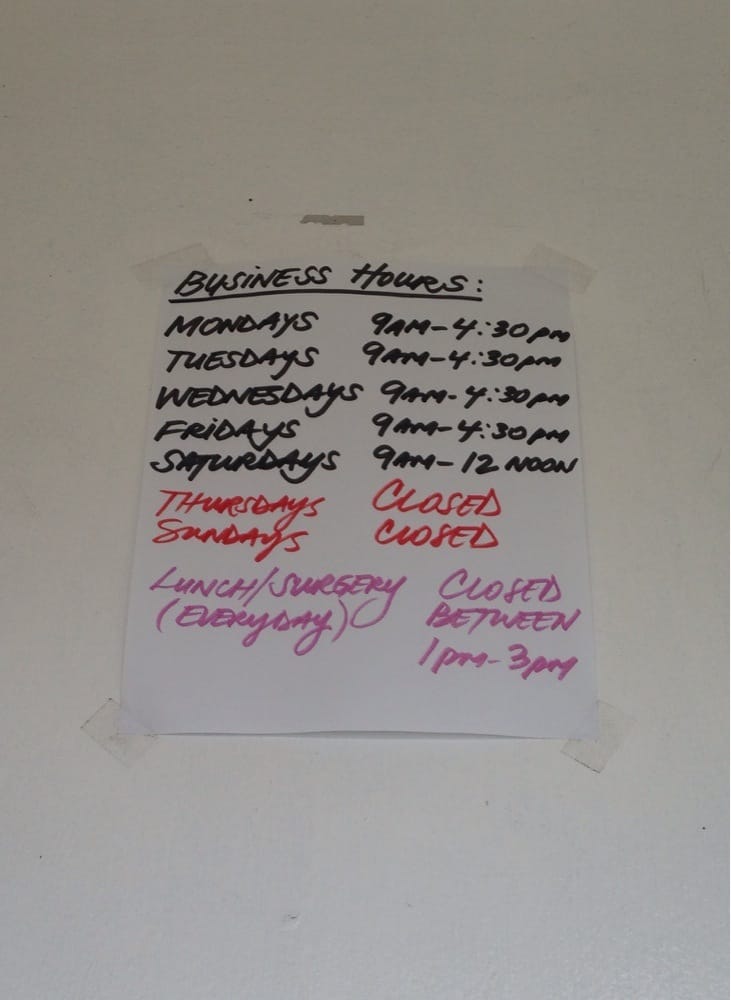 BUSINESS HOURS:
MONDAYS 9AM-4:30pm
TUESDAYS 9AM-4:30pm
WEDNESDAYS 9AM-4:30pm
FRIDAYS 9AM-4:30pm
SATURDAYS 9AM-12 NOON
THURSDAYS CLOSED
SUNDAYS CLOSED
LUNCH/SURGERY CLOSED
(EVERYDAY) BETWEEN
1pm-3pm